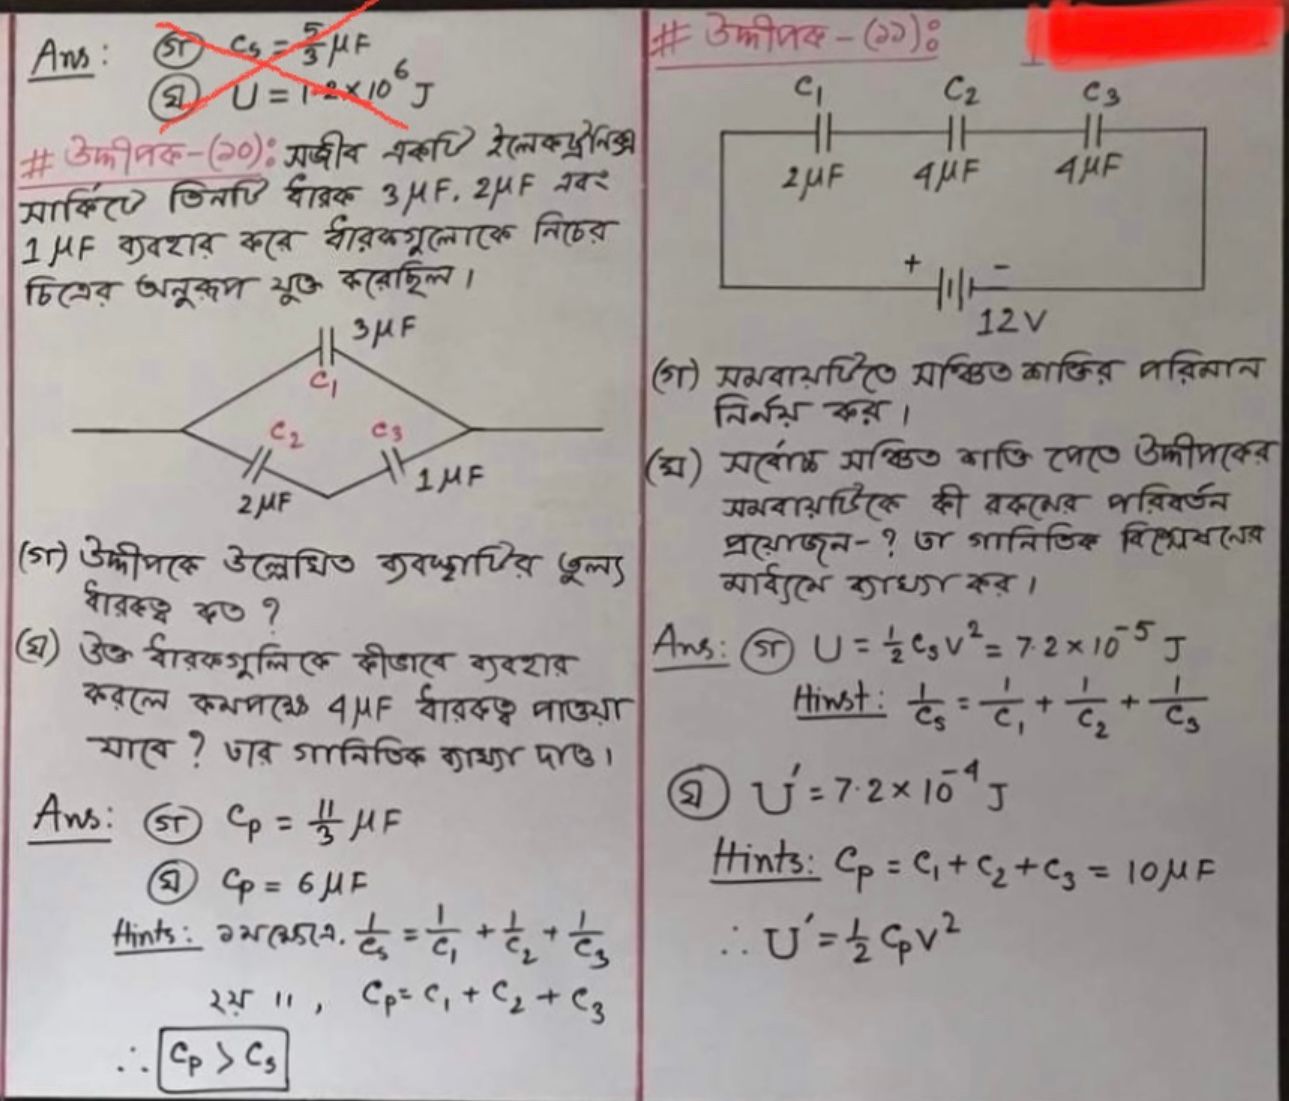 Ans: (গ) Cs = 5/3 μF
(ঘ) U = 1.2×10^6 J
# উদ্দীপক-(১০): সজীব একটি ইলেকট্রনিক্স
সার্কিটে তিনটি ধারক 3μF, 2μF এবং
1μF ব্যবহার করে ধারকগুলোকে নিচের
চিত্রের অনুরূপ যুক্ত করেছিল।
3μF
C1
C2 C3
2μF 1μF
(গ) উদ্দীপকে উল্লেখিত ব্যবস্থাটির তুল্য
ধারকত্ব কত ?
(ঘ) উক্ত ধারকগুলিকে কীভাবে ব্যবহার
করলে কমপক্ষে 4μF ধারকত্ব পাওয়া
যাবে ? তার গানিতিক ব্যাখ্যা দাও।
Ans: (গ) Cp = 11/3 μF
(ঘ) Cp = 6μF
Hints: ১ম ক্ষেত্রে, 1/Cs = 1/C1 + 1/C2 + 1/C3
২য় ", Cp = C1 + C2 + C3
∴ Cp > Cs
# উদ্দীপক-(১১):
C1 C2 C3
2μF 4μF 4μF
+ -
12V
(গ) সমবায়টিতে সঞ্চিত শক্তির পরিমান
নির্নয় কর।
(ঘ) সর্বোচ্চ সঞ্চিত শক্তি পেতে উদ্দীপকের
সমবায়টিকে কী রকমের পরিবর্তন
প্রয়োজন-? তা গানিতিক বিশ্লেষনের
মাধ্যমে ব্যাখ্যা কর।
Ans: (গ) U = 1/2 Cs V^2 = 7.2×10^-5 J
Hinst: 1/Cs = 1/C1 + 1/C2 + 1/C3
(ঘ) U' = 7.2×10^-4 J
Hints: Cp = C1 + C2 + C3 = 10μF
∴ U' = 1/2 Cp V^2